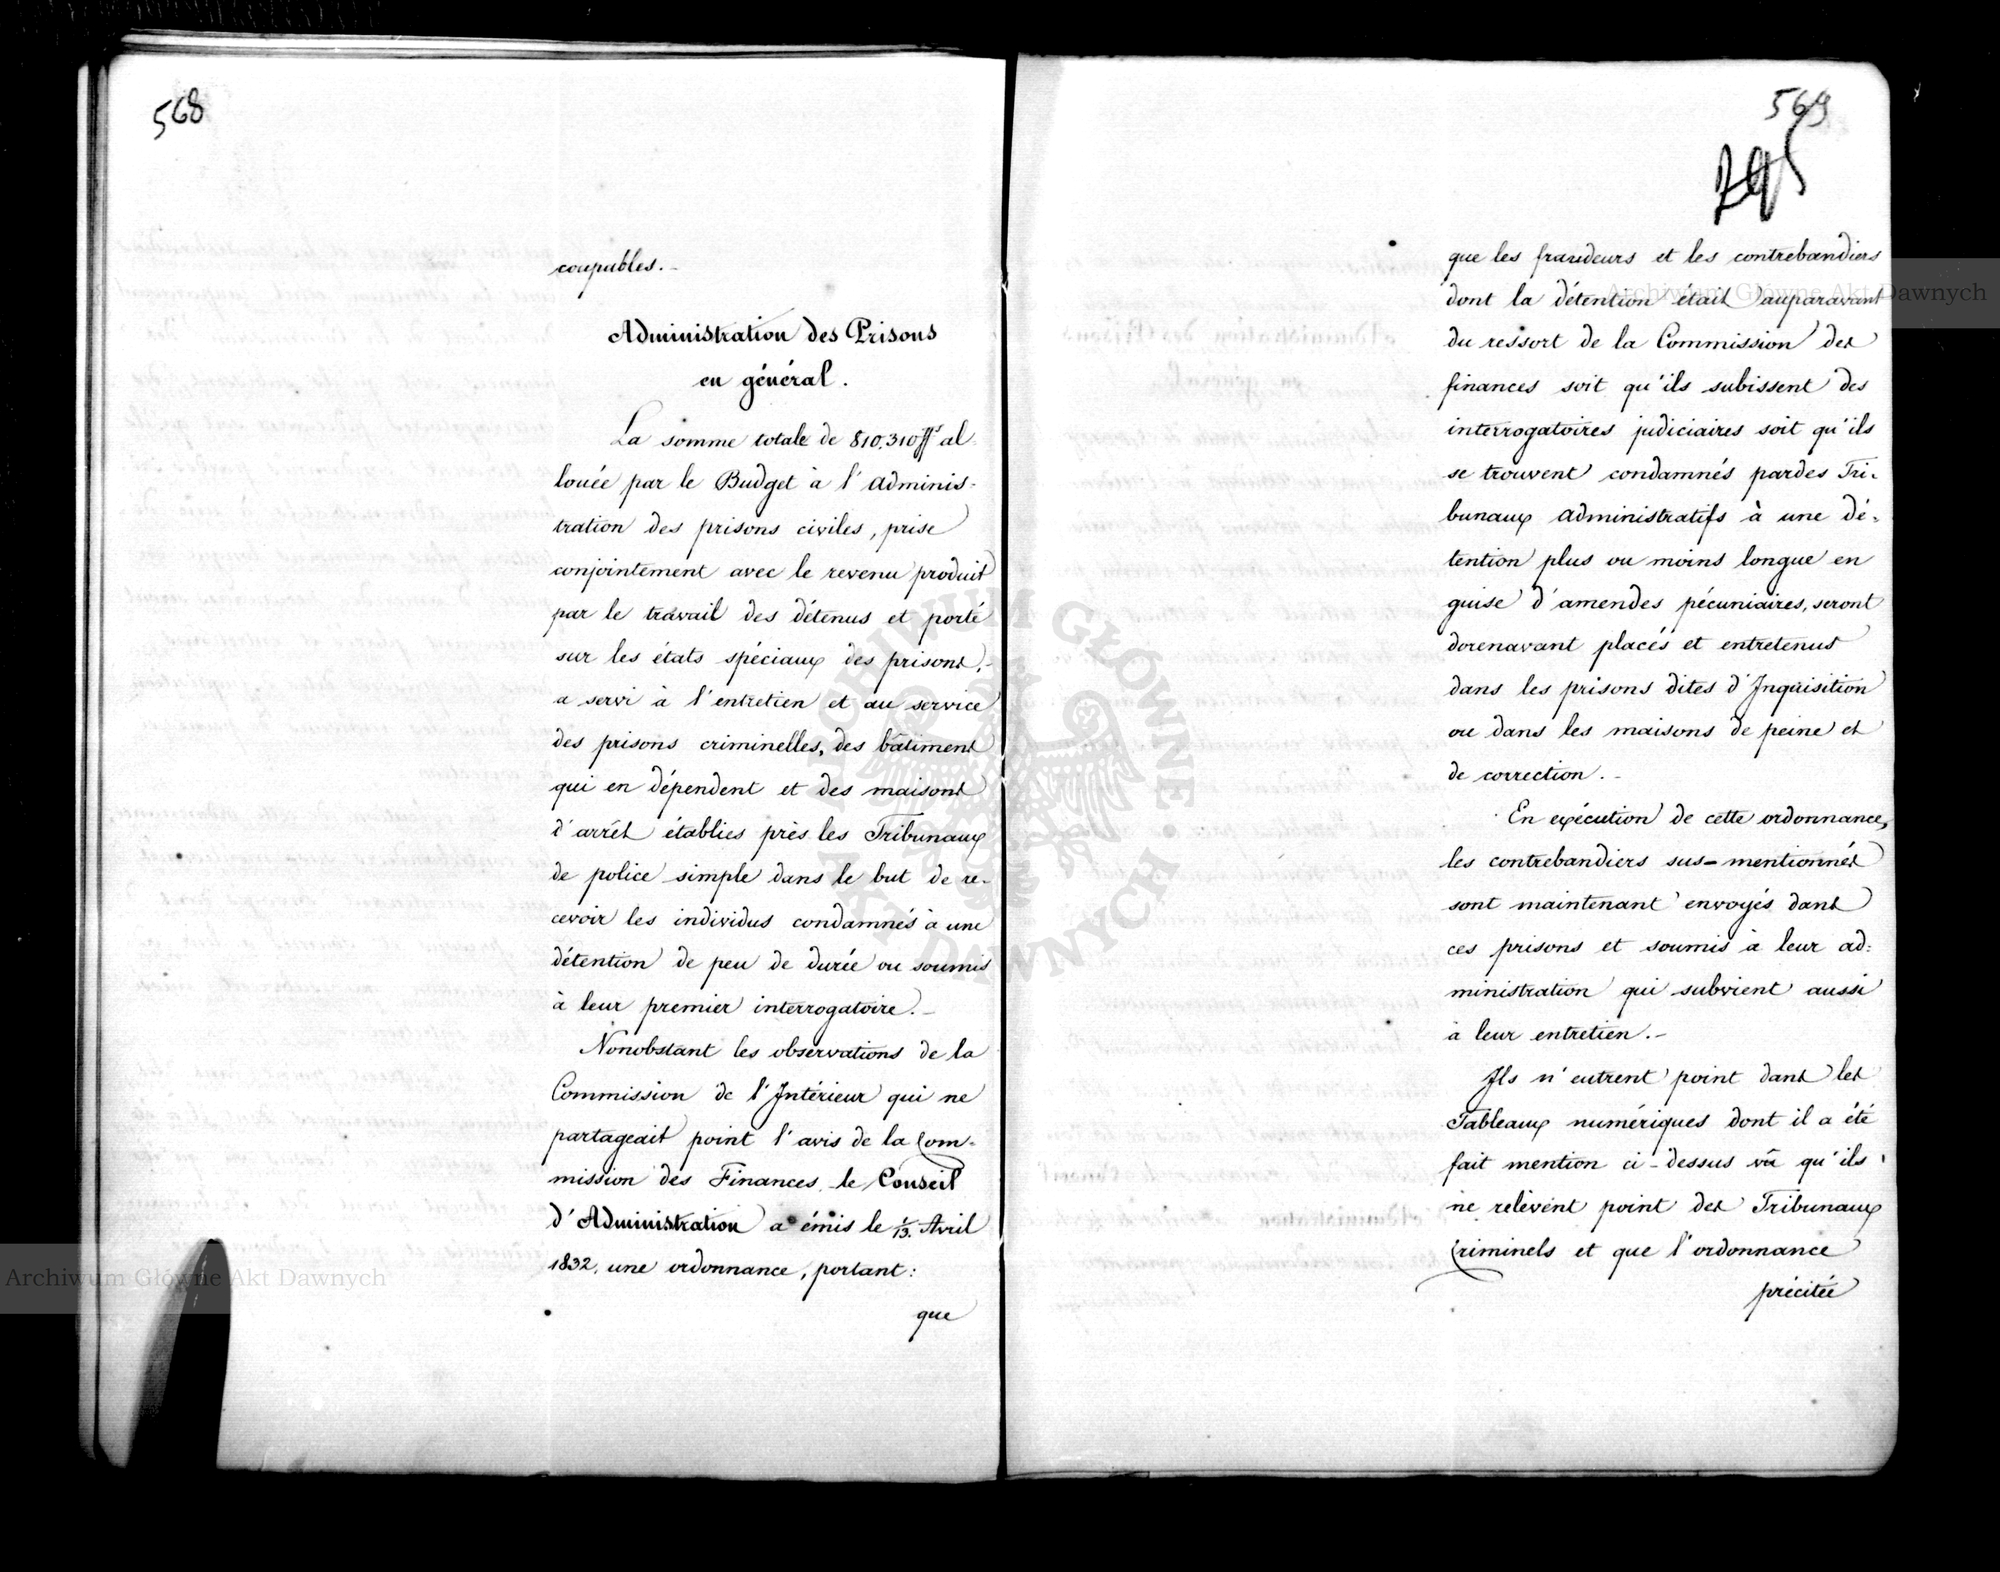 568
coupables.-
Administration des Prisons
en général.
La somme totale de 810,310 ffs al-
louée par le Budget à l'adminis-
tration des prisons civiles, prise
conjointement avec le revenu produit
par le travail des détenus et porté
sur les états spéciaux des prisons,-
a servi à l'entretien et au service
des prisons criminelles, des bâtiments
qui en dépendent et des maisons
d'arrêt établies près les Tribunaux
de police simple dans le but de re-
cevoir les individus condamnés à une
détention de peu de durée ou soumis
à leur premier interrogatoire.-
Nonobstant les observations de la
Commission de l'Intérieur qui ne
partageait point l'avis de la Com-
mission des Finances, le Conseil
d'Administration a émis le 1/13. Avril
1832, une ordonnance, portant:
que
569
295
que les fraudeurs et les contrebandiers
dont la détention était auparavant
du ressort de la Commission des
finances soit qu'ils subissent des
interrogatoires judiciaires soit qu'ils
se trouvent condamnés par des Tri-
bunaux administratifs à une dé-
tention plus ou moins longue en
guise d'amendes pécuniaires, seront
dorenavant placés et entretenus
dans les prisons dites d'Inquisition
ou dans les maisons de peine et
de correction.-
En exécution de cette ordonnance,
les contrebandiers sus-mentionnés
sont maintenant envoyés dans
ces prisons et soumis à leur ad-
ministration qui subvient aussi
à leur entretien.-
Ils n'entrent point dans les
Tableaux numériques dont il a été
fait mention ci-dessus vû qu'ils
ne relèvent point des Tribunaux
Criminels et que l'ordonnance
précitée
Archiwum Główne Akt Dawnych
Archiwum Główne Akt Dawnych
ARCHIWUM GŁÓWNE AKT DAWNYCH